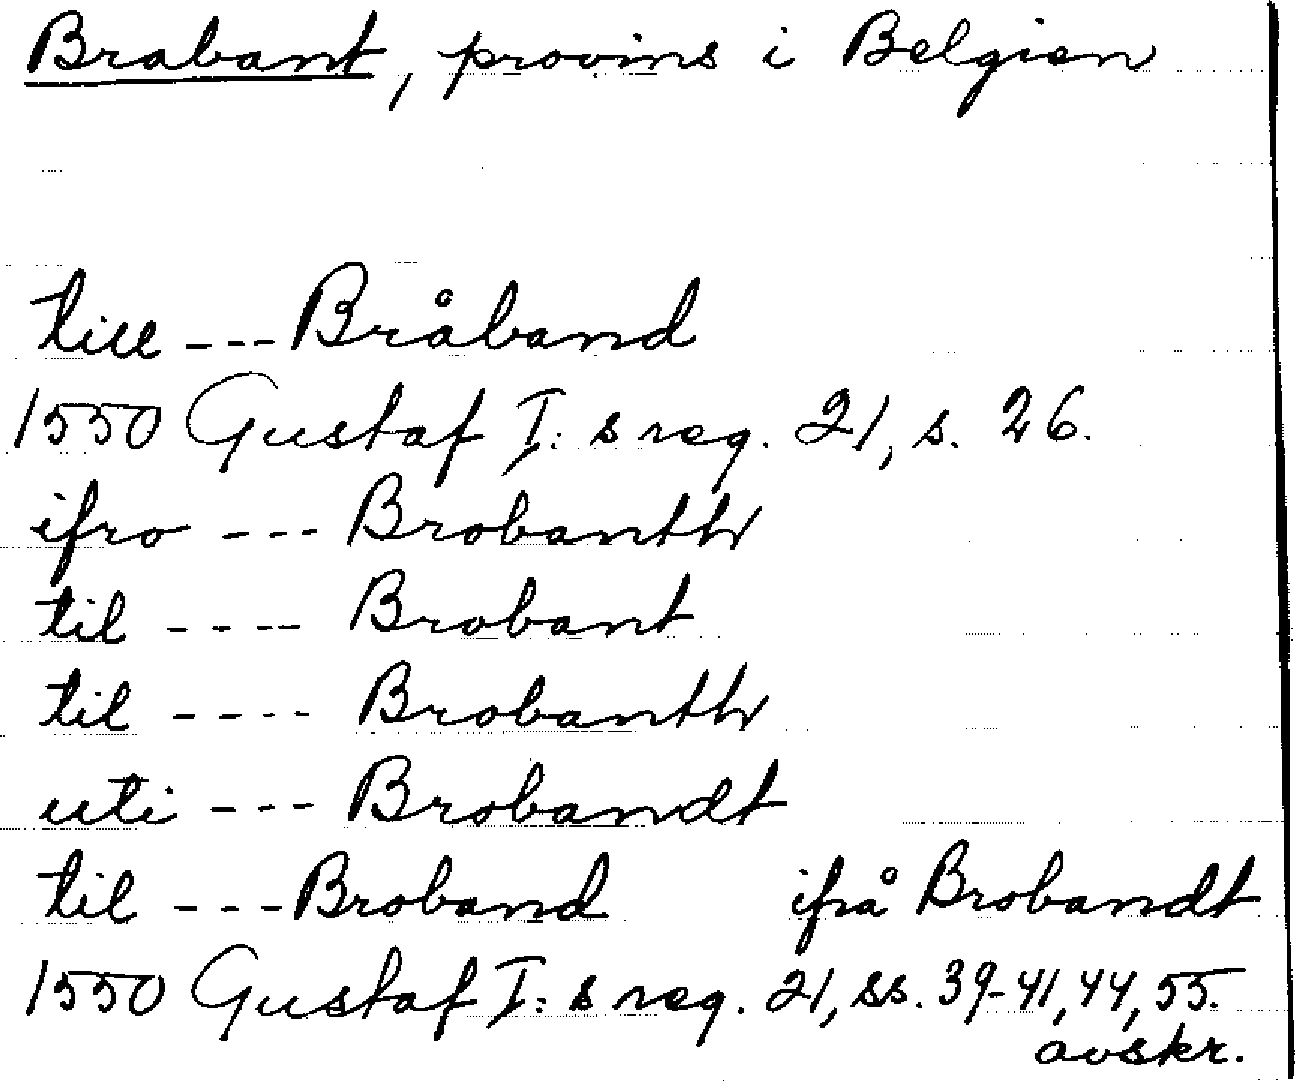 Brabant, provins i Belgien
till --- Bråband
1550 Gustaf I: s reg. 21, s. 26.
ifro --- Brobanth
til ---- Brobant
til ---- Brobanth
uti --- Brobandt
til --- Broband ifrå Brobandt
1550 Gustaf I: s reg. 21, ss. 39-41, 44, 55.
avskr.